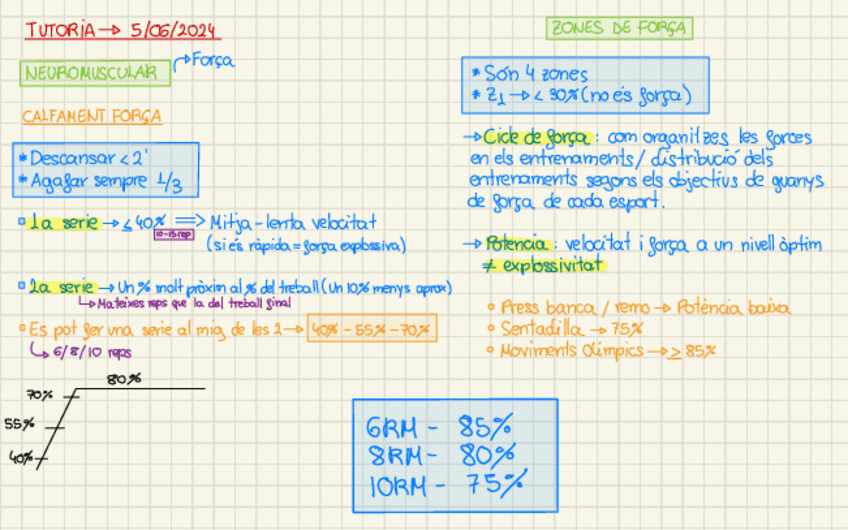 TUTORIA → 5/06/2024
NEUROMUSCULAR → Força
CALFAMENT FORÇA
* Descansar < 2'
* Agafar sempre 1/3
1a serie → ≤ 40% ⟹ Mitja-lenta velocitat
10-15 rep
(si és ràpida = força explossiva)
2a serie → Un % molt pròxim al % del treball (Un 10% menys aprox)
↳ Mateixes reps que la del treball final
Es pot fer una serie al mig de les 2 → 40% - 55% - 70%
↳ 6/8/10 reps
80%
70%
55%
40%
ZONES DE FORÇA
* Són 4 zones
* Z1 → < 30% (no és força)
→ Cicle de força: com organitzes les forces
en els entrenaments / distribució dels
entrenaments segons els objectius de guanys
de força de cada esport.
→ Potencia: velocitat i força a un nivell òptim
≠ explossivitat
Press banca / remo → Potència baixa
Sentadilla → 75%
Moviments Olímpics → ≥ 85%
6RM - 85%
8RM - 80%
10RM - 75%